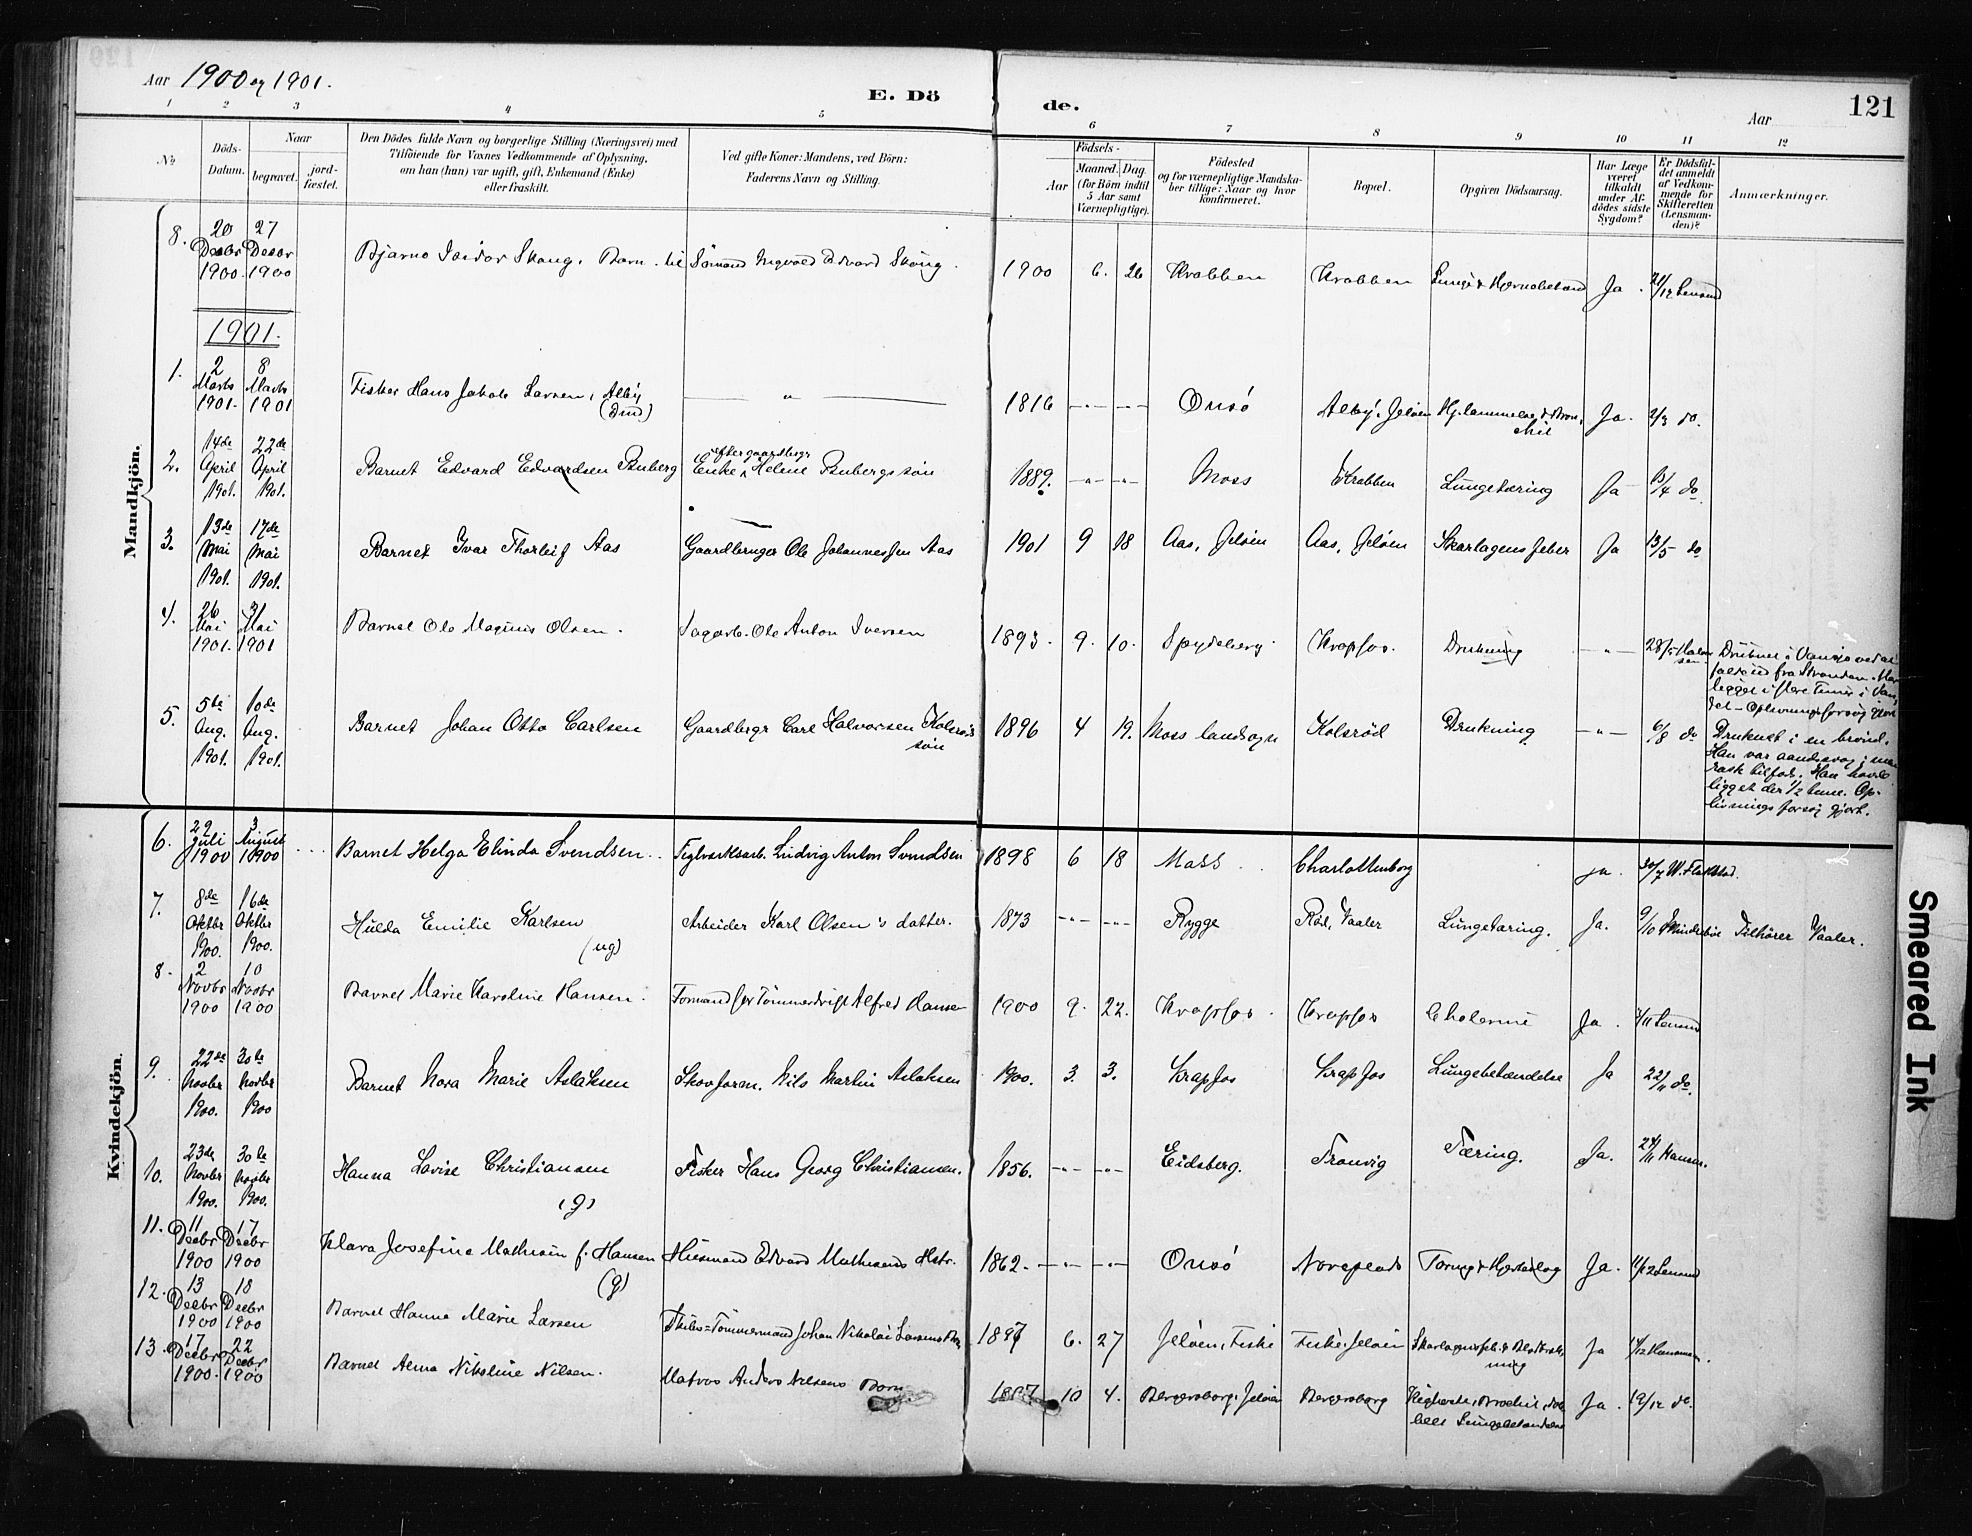 Aar 1900 og 1901.
E. Dö
de.
Aar
121
1 2 3 4 5 6 7 8 9 10 11 12
No
Döds-
Datum.
Naar
begravet.
jord-
fæstet.
Den Dödes fulde Navn og borgerlige Stilling (Næringsvei) med
Tilföiende for Voxnes Vedkommende af Oplysning,
om han (hun) var ugift, gift, Enkemand (Enke)
eller fraskilt.
Ved gifte Koner: Mandens, ved Börn:
Faderens Navn og Stilling.
Födsels-
Aar
Maaned. Dag.
(for Börn indtil
5 Aar samt
Værnepligtige).
Födested
og for værnepligtige Mandska-
ber tillige: Naar og hvor
konfirmeret.
Bopæl.
Opgiven Dödsaarsag.
Har Læge
været
tilkaldt
under Af-
dödes sidste
Sygdom?
Er Dödsfal-
det anmeldt
af Vedkom-
mende for
Skifteretten
(Lensman-
den)?
Anmærkninger.
Mandkjön.
8. 20 Decbr 1900 27 Decbr 1900 Bjarne Isidor Skaug, Barn til Sömand Ingvald Edvard Skaug. 1900 6. 26 Krabben Krabben Lunge & Hjernebetænd Ja. 21/12 Lensmd
1901.
1. 2 Marts 1901. 8 Marts 1901 Fisker Hans Jakob Larsen, Alby — " — 1816 — " — — " — Onsö Alby, Jelöen Hj.lammelse & Bron- Ja. 2/3 do.
chit
2. 14de April 1901. 22de April 1901. Barnet Edvard Edvardsen Enke efter gaardbrgr Helene 1889. — " — — " — Moss Krabben Lungetæring Ja 15/4 do
3. 13de Mai 1901. 17de Mai 1901. Barnet Ivar Thorleif Aas Gaardbruger Ole Johannessen Aas 1901 9 18 Aas, Jelöen Aas, Jelöen Skarlagensfeber Ja 13/5 do
4. 26 Mai 1901. 31 Mai 1901 Barnet Ole Magnus Olsen. Sagarb. Ole Anton Iversen 1893. 9. 10. Spydeberg Krapfos. Drukning — " — 28/5 Druknet i Vansjö ved at
falde ud fra Stranden. Har
ligget i flere Timer i Van-
det - Oplivningsforsög gjort
5. 5te Aug. 1901. 10de Aug. 1901. Barnet Johan Otto Carlsen Gaardbrgr Carl Halvorsen Kolsröds
sön 1896 4 19. Moss landsogn Kolsröd Drukning — " — 6/8 do Druknet i en brönd.
Han var aandssvag; men
rask tilfods. Han havde
ligget der 1/2 time. Op-
livningsforsög gjort.
Kvindekjön.
6. 29 Juli 1900 3 August 1900 Barnet Helga Elinda Svendsen. Teglværksarb. Ludvig Anton Svendsen 1898 6 18 Moss Charlottenborg ja. 30/7 W. Flakstad.
7. 8de Oktbr 1900. 16de Oktbr 1900. Hulda Emilie Karlsen
(ug) Arbeider Karl Olsen's datter. 1873 — " — — " — Rygge Röd, Vaaler Lungetæring. Ja. 9/10 Tilhörer Vaaler.
8. 2 Novbr 1900 10 Novbr 1900 Barnet Marie Karoline Hansen. Formand for Tömmerdrift Alfred Hansen 1900 9. 22. Krapfos Krapfos Cholerine Ja. 3/11 Lensmd
9. 22de Novbr 1900. 30te Novbr 1900 Barnet Nora Marie Aslaksen Skovforen. Nils Martin Aslaksen 1900. 3. 3. Krapfos Krapfos Lungebetændelse Ja 22/11 do.
10. 23de Novbr 1900. 30te Novbr 1900. Hanna Lovise Christiansen
(g) Fisker Hans Georg Christiansen. 1856. — " — — " — Eidsberg. Tronvig Tæring. Ja. 24/11 Hansen.
11. 11 Decbr 1900 17 Decbr 1900 Klara Josefine Mathisen f. Hansen
(g) Husmand Edvard Mathisens Hstr. 1862. — " — — " — Onsö Noreplads Tæring & Hjerteslag Ja. 11/12 Lensmd
12. 13 Decbr 1900 18 Decbr 1900 Barnet Hanna Marie Larsen Skibs-Tömmermand Johan Nikolai Larsens Barn 1897 6. 27 Jelöen, Fiske Fiske, Jelöen Skarlagensfeb. & Blodforgift-
ning Ja 14/12 Hansen.
13. 17 Decbr 1900. 22 Decbr 1900 Barnet Alma Nikoline Nilsen. Matros Anders Nilsens Barn 1897 10 4. Bergersborg, Jelöen Bergersborg Kighoste, Bronchit, dob-
belt Lungebetændelse Ja. 19/12 do.
Smeared Ink